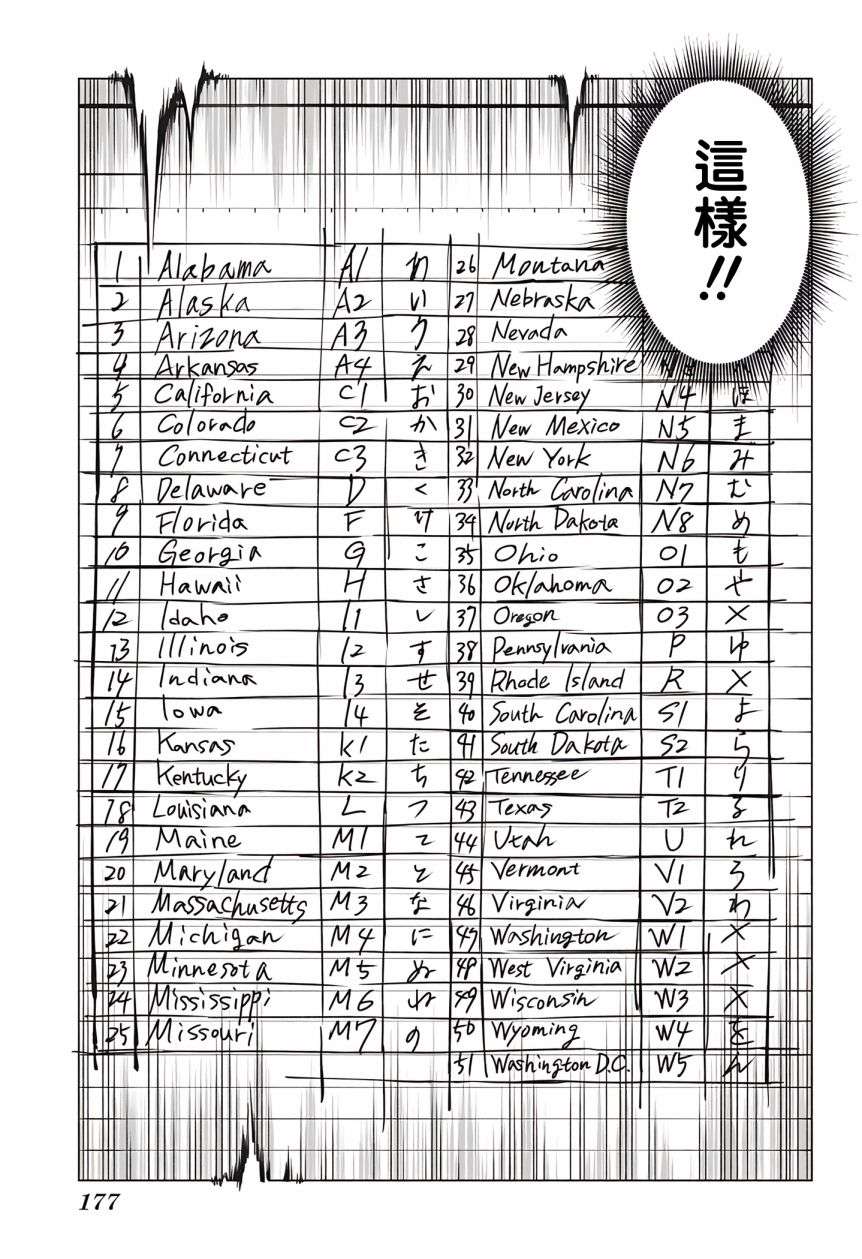 這樣!!
1 Alabama A1 26 Montana
2 Alaska A2 い 27 Nebraska
3 Arizona A3 う 28 Nevada
4 Arkansas A4 え 29 New Hampshire
5 California C1 お 30 New Jersey N4 ほ
6 Colorado C2 か 31 New Mexico N5 ま
7 Connecticut C3 き 32 New York N6 み
8 Delaware D く 33 North Carolina N7 む
9 Florida F け 34 North Dakota N8 め
10 Georgia G こ 35 Ohio O1 も
11 Hawaii H さ 36 Oklahoma O2 や
12 Idaho I1 し 37 Oregon O3 ×
13 Illinois I2 す 38 Pennsylvania P ゆ
14 Indiana I3 せ 39 Rhode Island R ×
15 Iowa I4 そ 40 South Carolina S1 よ
16 Kansas K1 た 41 South Dakota S2 ら
17 Kentucky K2 ち 42 Tennessee T1 り
18 Louisiana L つ 43 Texas T2 る
19 Maine M1 て 44 Utah U れ
20 Maryland M2 と 45 Vermont V1 ろ
21 Massachusetts M3 な 46 Virginia V2 わ
22 Michigan M4 に 47 Washington W1 ×
23 Minnesota M5 ぬ 48 West Virginia W2 ×
24 Mississippi M6 ね 49 Wisconsin W3 ×
25 Missouri M7 の 50 Wyoming W4 を
51 Washington D.C. W5 ん
177